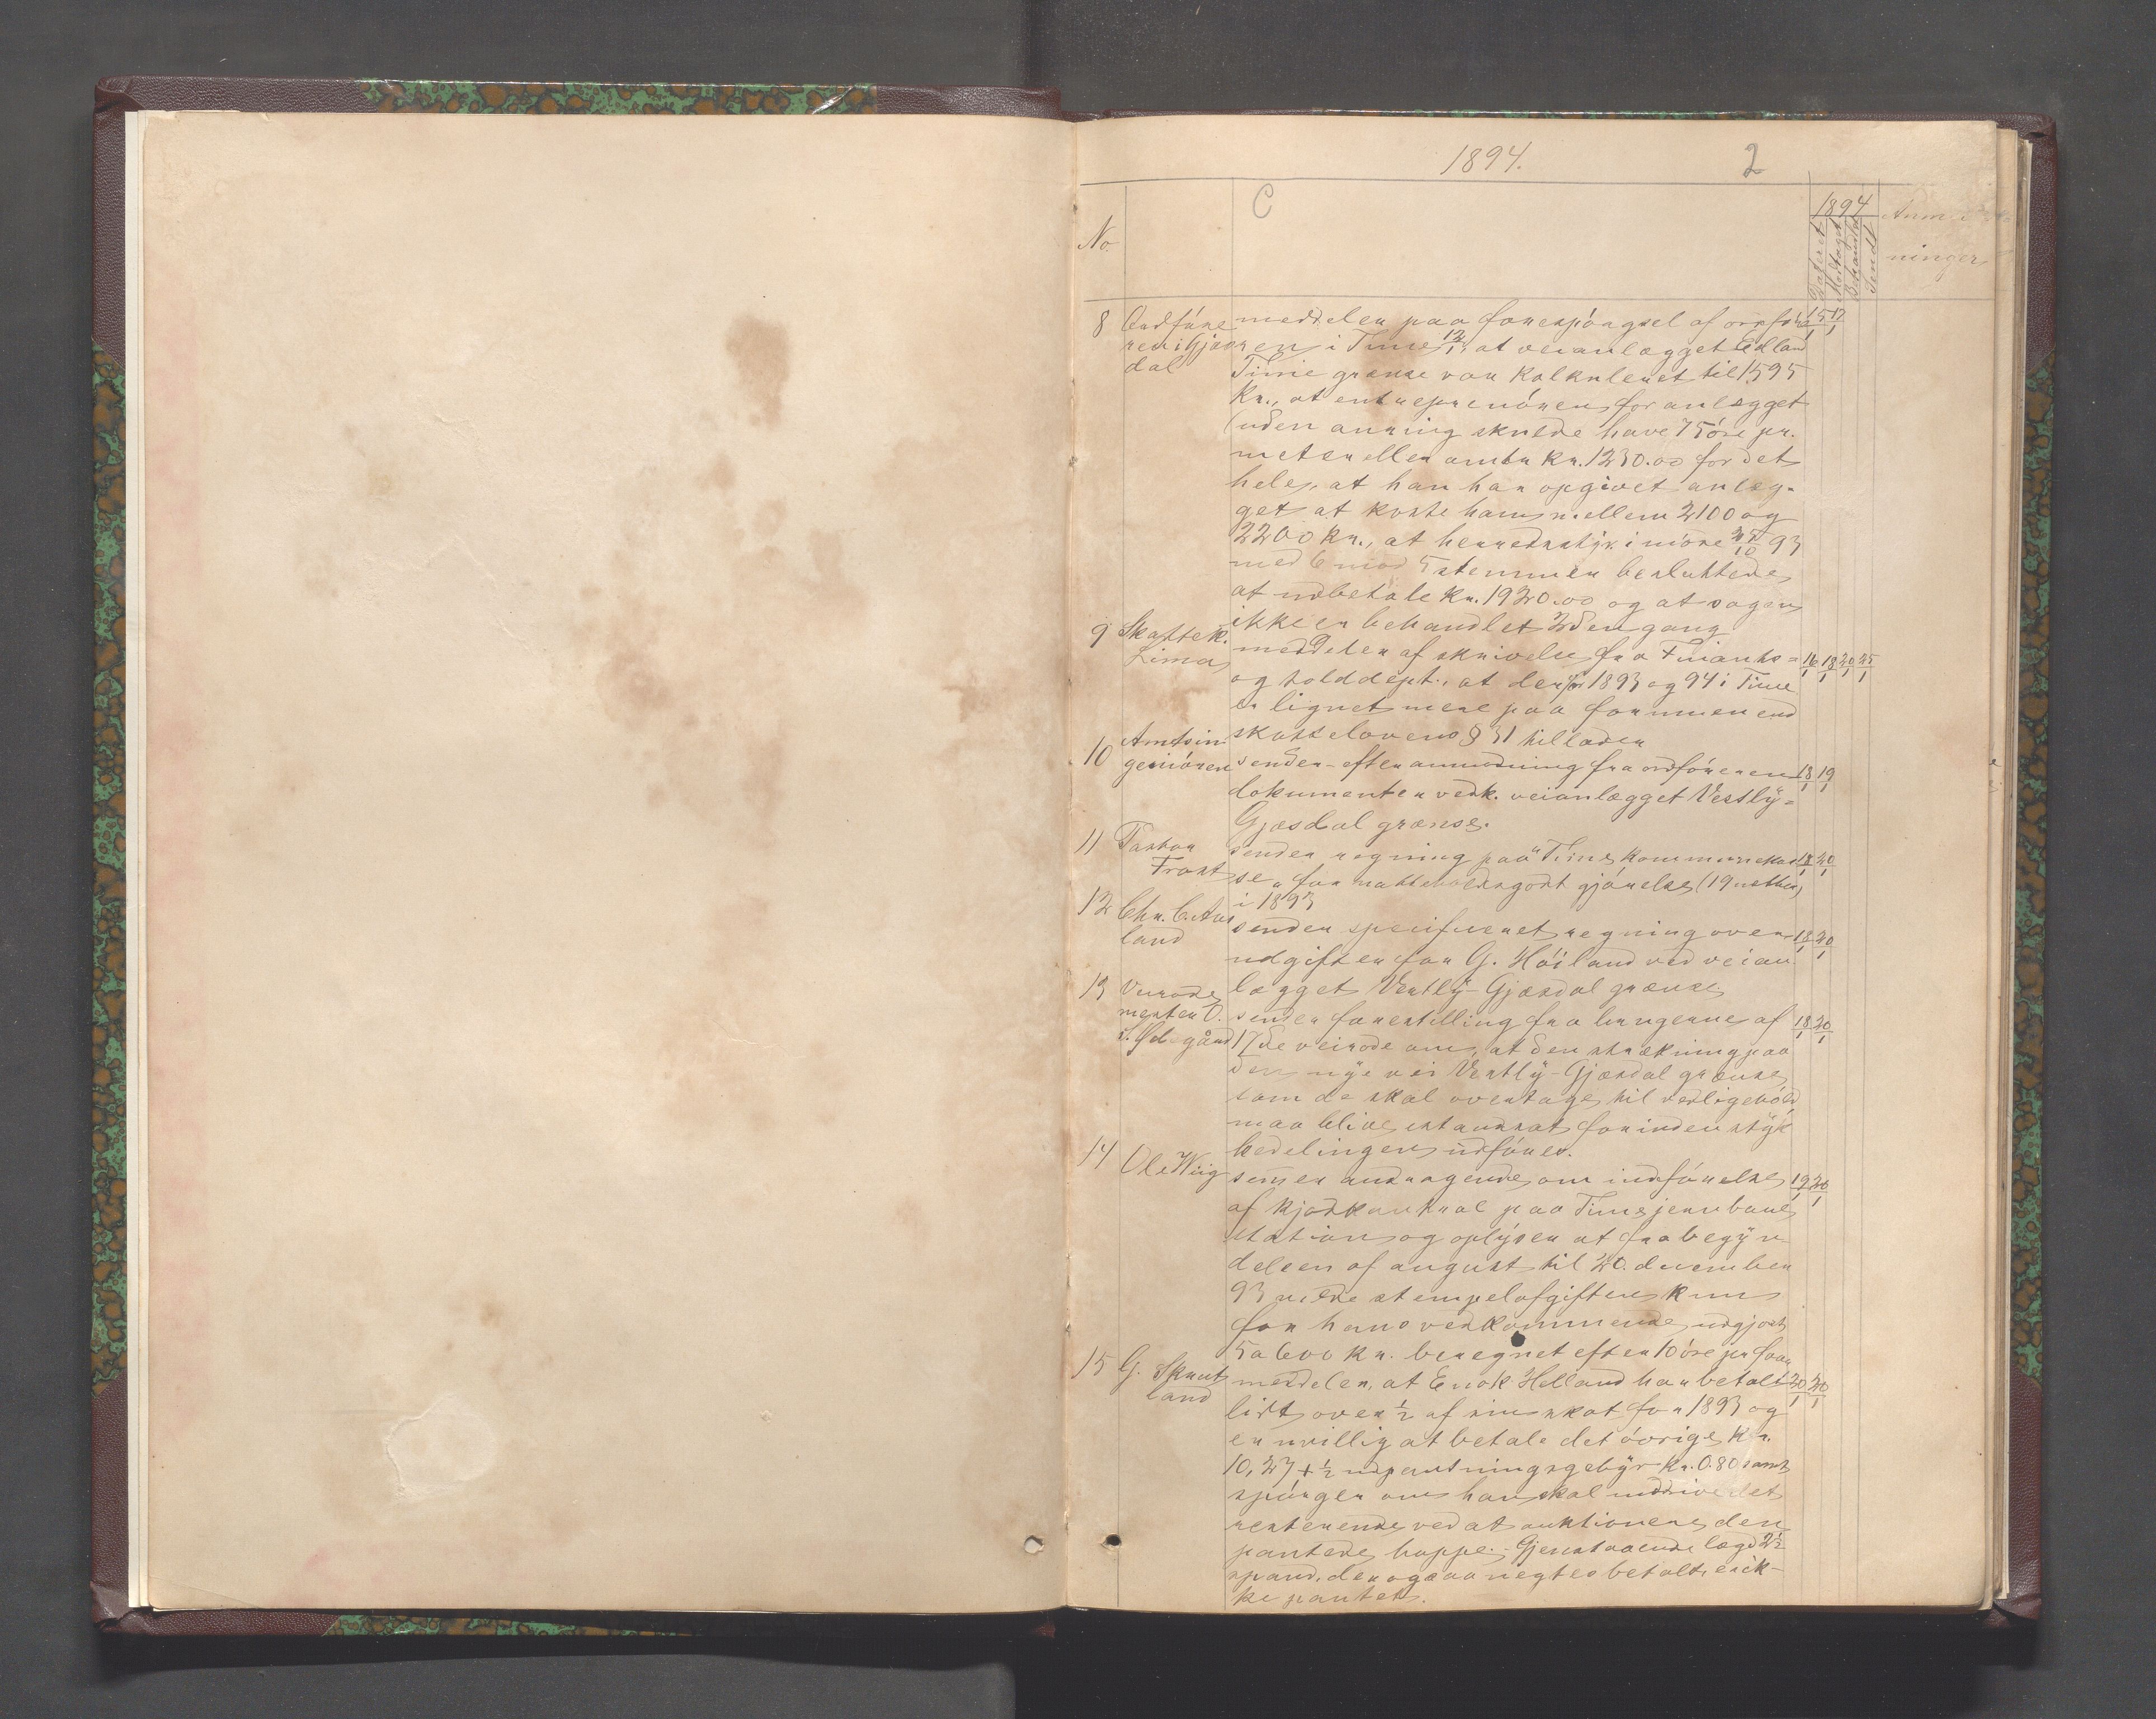 1894.
2
No.
C
1894
Dateret
Modtaget
Behandlet
Sendt
Anmærk
ninger
8 Ordføre meddeler paa forespørgsel af ordføre 15/1 17/1
ren i Gjæs ren i Time 12/1, at veianlægget Edland
dal Time grænse var kalkuleret til 1595
Kr., at entreprenøren for anlægget
(uden anning skulde have 75 øre pr.
meter eller omtr Kr. 1230.00 for det
hele, at han har opgivet anlæg-
get at koste ham mellem 2100 og
2200 Kr., at herredsstyr. i møde 25/10 93
med 6 mod 5 stemmer besluttede
at udbetale Kr. 1920.00 og at sagen
ikke er behandlet 2den gang
9 Skattek. meddeler af skrivelse fra Finants = 16/1 18/1 20/1 25/1
Lima og tolddept., at der for 1893 og 94 i Time
er lignet mere paa formuen end
skattelovens § 31 tillader
10 Amtsin
geniøren sender efter anmodning fra ordføreren 18/1 19/1
dokumenter vedk. veianlægget Vestly =
Gjæsdal grænse.
11 Pastor sender regning paa "Time kommunekas 18/1 20/1
Frost se" for natteholdsgodtgjørelse (19 nætter)
i 1893
12 Chr. C. Aas sender specificeret regning over 18/1 20/1
land udgifter for G. Höiland ved veian
lægget Vestly - Gjæsdal grænse
13 Veirode
mester O. sender forestilling fra brugerne af 18/1 20/1
S. Ødegård 17de veirode om, at den strækning paa
den nye vei Vestly - Gjæsdal grænse
som de skal overtage til vedligehold
maa blive istandsat forinden styk
kedelingen udføres.
14 Ole Wiig sender andragende om indførelse 19/1 20/1
af kjødkontrol paa Time jernbane
station og oplyser at fra begyn
delsen af august til 20. december
93 vilde stempelafgiften kun
for hans vedkommende udgjort
5 a 600 Kr. beregnet efter 10 øre pr faar
15 G. Skrut meddeler, at Enok Helland har betalt 20/1 20/1
land lidt over 1/2 af sin skat for 1893 og
er uvillig at betale det øvrige Kr.
10,27 + 1/2 udpantningsgebyr Kr. 0.80 samt
spørger om han skal inddrive det
resterende ved at auktionere den
pantede hoppe. - Gjenstaaende lægd 2 1/2
spand, der ogsaa negtes betalt, er ik-
ke pantet.